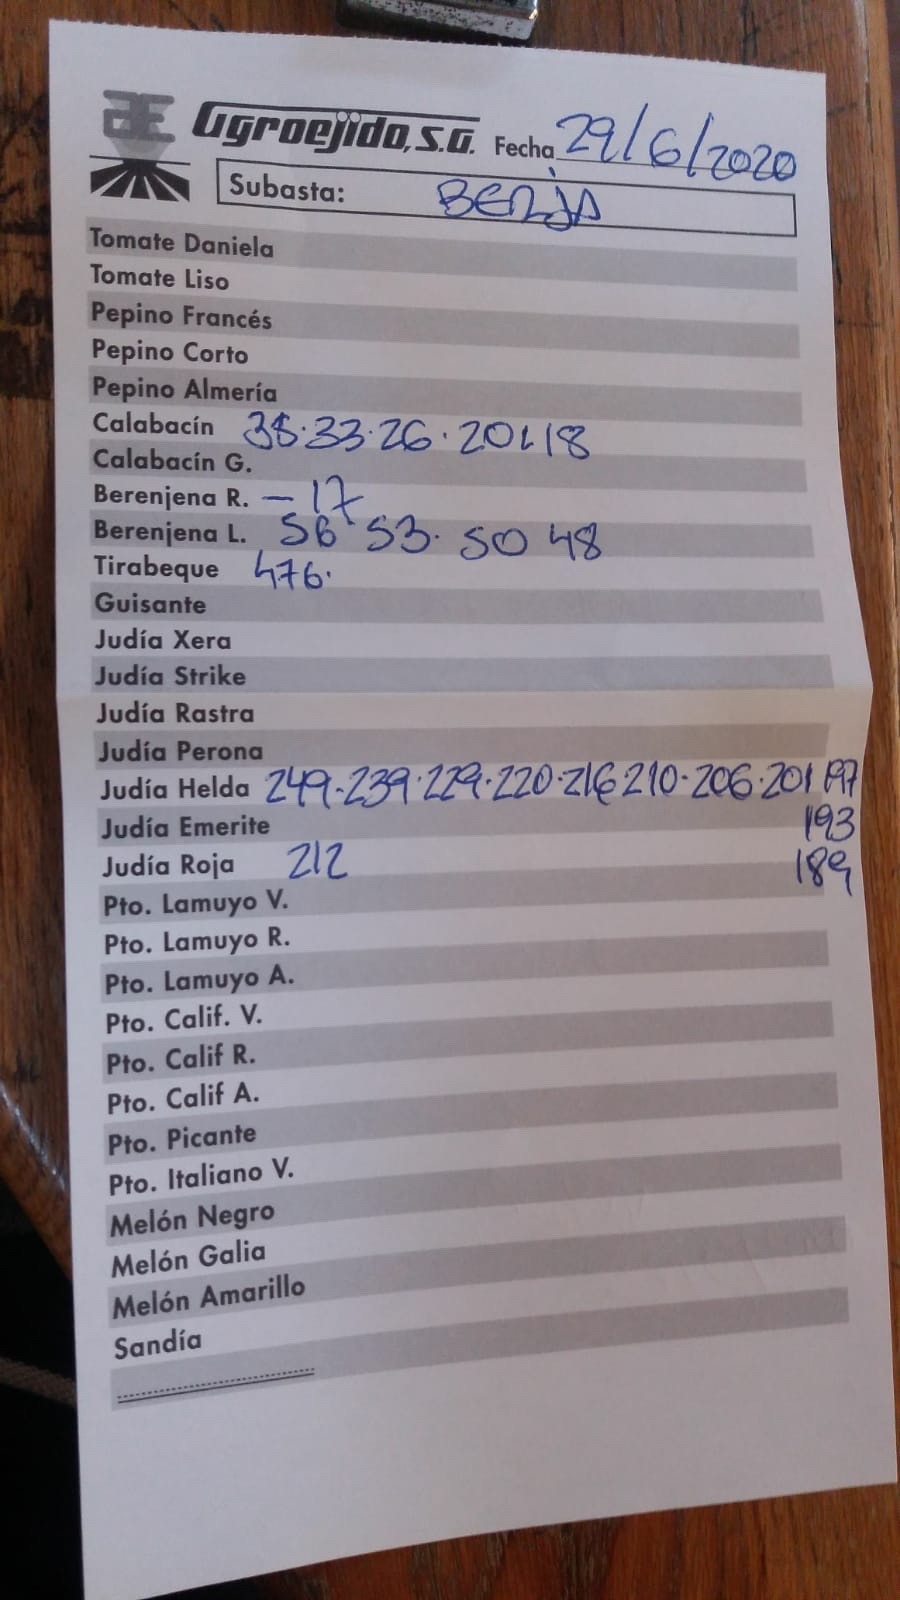 Agroejido, S.A. Fecha 29/6/2020
Subasta: BERJA
Tomate Daniela
Tomate Liso
Pepino Francés
Pepino Corto
Pepino Almería
Calabacín 38·33·26·20 18
Calabacín G.
Berenjena R. - 17
Berenjena L. 56 53· 50 48
Tirabeque 476·
Guisante
Judía Xera
Judía Strike
Judía Rastra
Judía Perona
Judía Helda 249·239·229·220·216 210·206·201 197
Judía Emerite 193
Judía Roja 212 189
Pto. Lamuyo V.
Pto. Lamuyo R.
Pto. Lamuyo A.
Pto. Calif. V.
Pto. Calif R.
Pto. Calif A.
Pto. Picante
Pto. Italiano V.
Melón Negro
Melón Galia
Melón Amarillo
Sandía